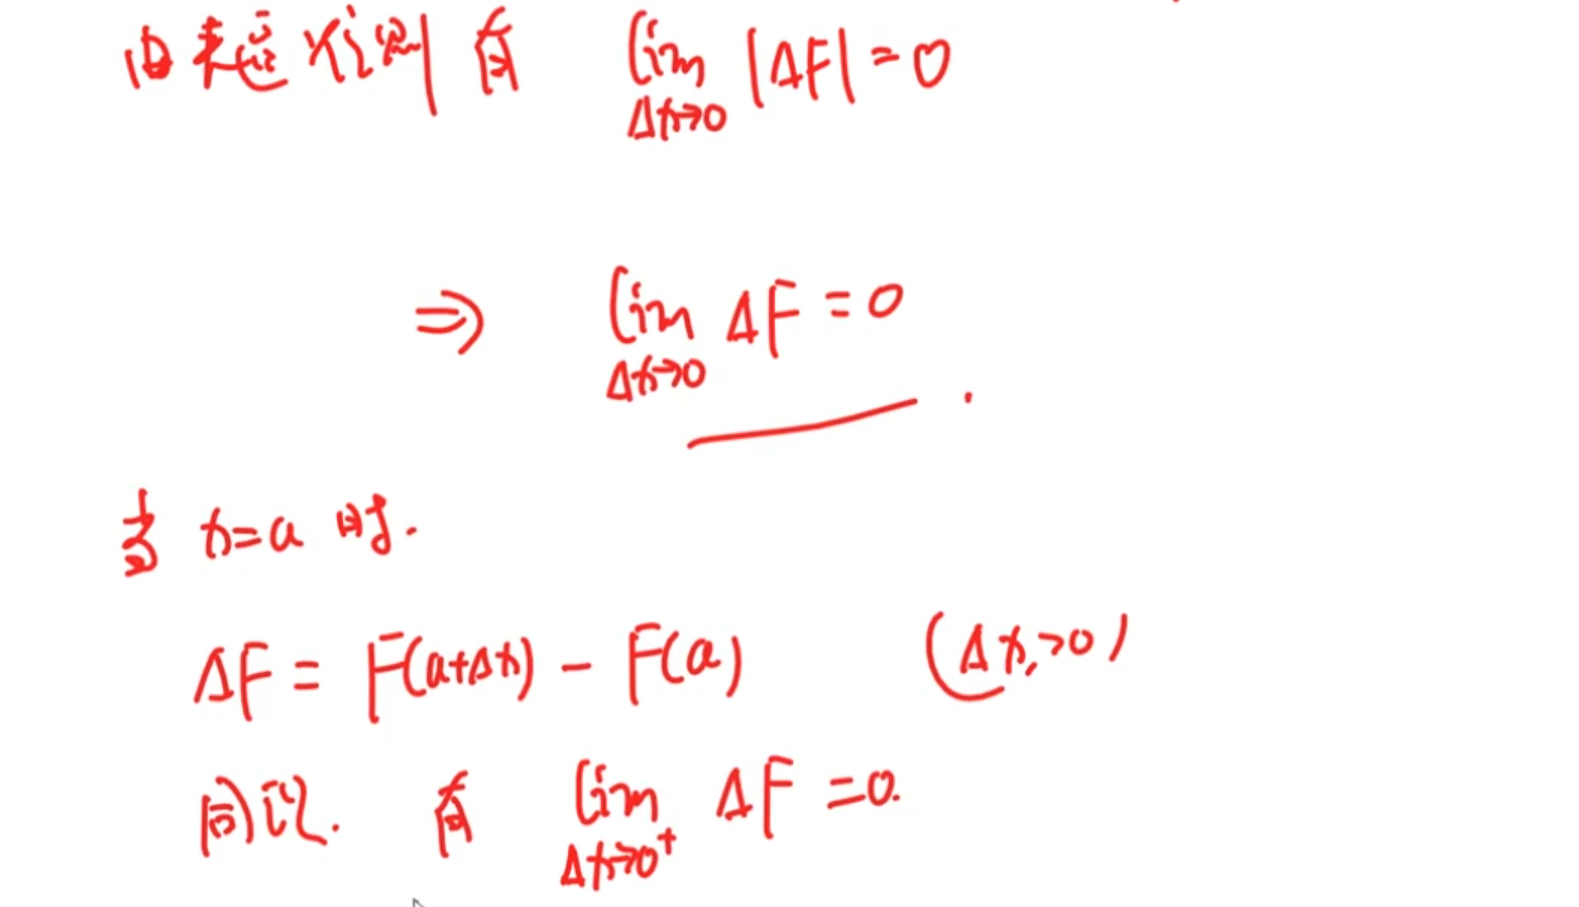 由夹逼准则有 lim Δx→0 |ΔF| = 0
⇒ lim Δx→0 ΔF = 0.
当 x=a 时.
ΔF = F(a+Δx) - F(a) (Δx>0)
同理. 有 lim Δx→0⁺ ΔF = 0.